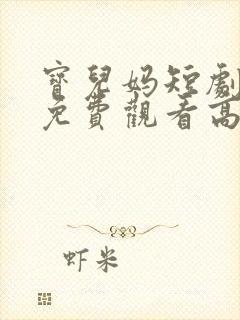 寶兒妈短劇
免費觀看高
虾米